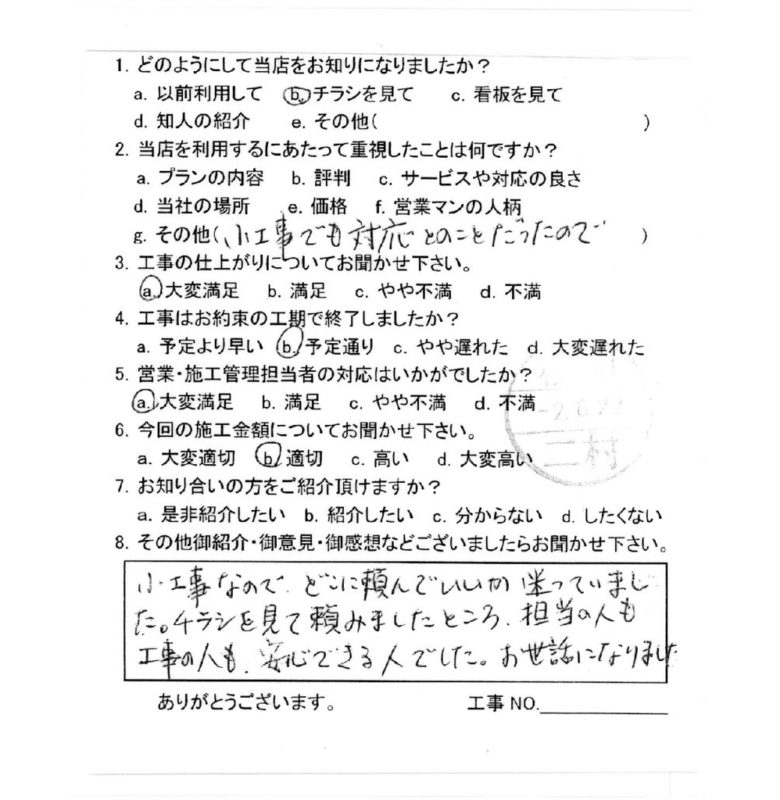 1. どのようにして当店をお知りになりましたか？
a. 以前利用して　b. チラシを見て　c. 看板を見て
d. 知人の紹介　e. その他(　)
2. 当店を利用するにあたって重視したことは何ですか？
a. プランの内容　b. 評判　c. サービスや対応の良さ
d. 当社の場所　e. 価格　f. 営業マンの人柄
g. その他(小工事でも対応とのことだったので　)
3. 工事の仕上がりについてお聞かせ下さい。
a. 大変満足　b. 満足　c. やや不満　d. 不満
4. 工事はお約束の工期で終了しましたか？
a. 予定より早い　b. 予定通り　c. やや遅れた　d. 大変遅れた
5. 営業・施工管理担当者の対応はいかがでしたか？
a. 大変満足　b. 満足　c. やや不満　d. 不満
6. 今回の施工金額についてお聞かせ下さい。
a. 大変適切　b. 適切　c. 高い　d. 大変高い
二村
7. お知り合いの方をご紹介頂けますか？
a. 是非紹介したい　b. 紹介したい　c. 分からない　d. したくない
8. その他御紹介・御意見・御感想などございましたらお聞かせ下さい。
小工事なので、どこに頼んでいいか迷っていまし
た。チラシを見て頼みましたところ、担当の人も
工事の人も、安心できる人でした。お世話になりました
ありがとうございます。　工事 NO.